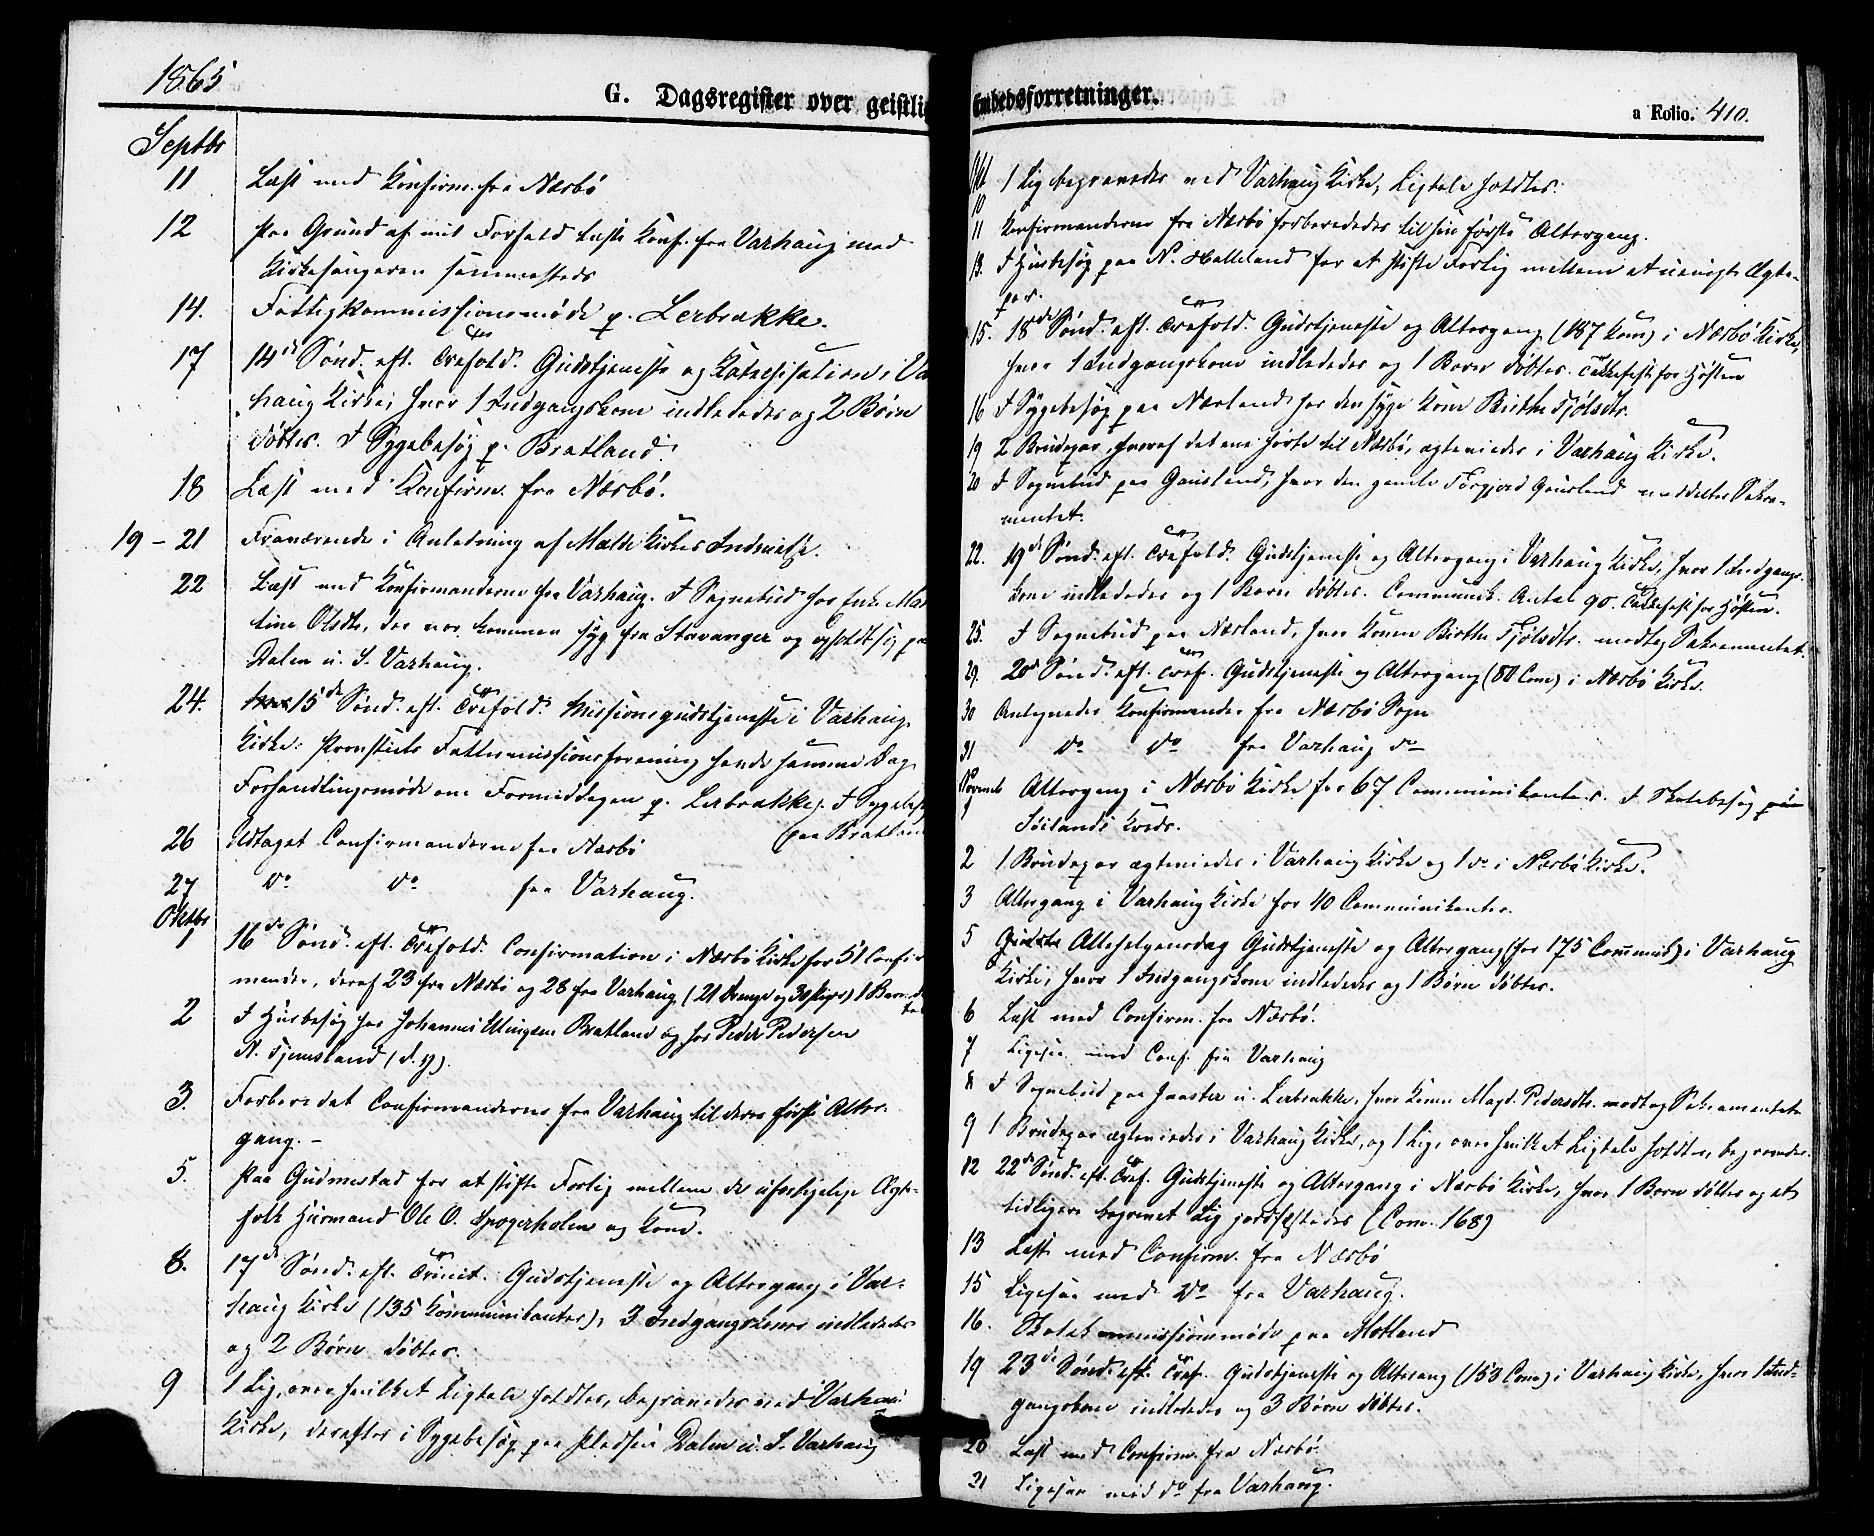 1865
G. Dagsregister over geistli
Septbr
11 Læst med Konfirm. fra Nærbö
12 Paa Grund af mit Forfald læste Konf. fra Varhaug med
Kirkesangeren sammesteds
14. Fattigkommissionsmöde p. Lerbrække.
17 14de Sönd. eft. Trefold. Gudstjeneste og Katechisation i Va
haug Kirke, hvor 1 Indgangskone indlededes og 2 Börn
döbtes. I Sygebesög p. Bratland.
18 Læst med Konfirm. fra Nærbö.
19 – 21 Fraværende i Anledning af Malde Kirkes Indvielse.
22 Læst med Konfirmanderne fra Varhaug. I Sognebud hos Enke Mar
tine Olsdtr, der var kommen syg fra Stavanger og opholdt sig pa
Dalen u. S. Varhaug.
24. 15de Sönd. eft. Trefold. Missionsgudstjeneste i Varhaug
Kirke. Provstiets Fællesmissionsforening havde samme Dag
Forhandlingsmöde om Formiddagen p. Lerbrække. I Sygebesög
paa Bratland
26 Udtaget Confirmanderne fra Nærbö
27 do do fra Varhaug.
Oktbr
1 16de Sönd. eft. Trefold. Confirmation i Nærbö Kirke for 51 Confir
mander, deraf 23 fra Nærbö og 28 fra Varhaug (21 Drenge og 30 Piger) 1 Barn döb
tes
2 I Husbesög hos Johannes Bratland og hos Peder Pedersen
N. Tjemsland (d. y).
3. Forberedet Confirmanderne fra Varhaug til deres förste Alter-
gang. –
5. Paa Gudmestad for at stifte Forlig mellem de uforligelige Ægte-
folk Husmand Ole O. og Kone.
8. 17de Sönd. eft. Trinit. Gudstjeneste og Altergang i Var-
haug Kirke (135 Kommunikanter), 3 Indgangskoner indlededes
og 2 Börn döbtes.
9 1 Lig, over hvilket Ligtale holdtes, begravedes ved Varhaug
Kirke, derefter i Sygebesög paa Pladsen Dalen u. S. Varhaug
Embedsforretninger.
a Folio. 410.
Okt
10 1 Lig begravedes ved Varhaug Kirke, Ligtale holdtes.
11 Konfirmanderne fra Nærbö forberededes til sin förste Altergang.
13. I Husbesög paa N. Helleland for at stifte Forlig mellem et uenigt Ægte-
par.
15. 18de Sönd. eft. Trefold. Gudstjeneste og Altergang (187 Kom) i Nærbö Kirke,
hvor 1 Indgangskone indlededes og 1 Barn döbtes. Takkefest for Hösten
16 I Sygebesög paa Nærland hos den syge Kone Birthe Tjölsdtr.
19 2 Brudepar, hvoraf det ene hörte til Nærbö, ægteviedes i Varhaug Kirke.
20 I Sognebud paa Gausland, hvor den gamle Torgjerd Gausland meddeltes Sakra-
mentet.
22. 19de Sönd. eft. Trefold. Gudstjeneste og Altergang i Varhaug Kirke, hvor 1 Indgangs-
kone indlededes og 1 Barn döbtes. Communik. Antal 90. Takkefest for Hösten.
25. I Sognebud paa Nærland, hvor Konen Birthe Tjölsdtr. modtog Sakramentet.
29. 20de Sönd. eft. Tref. Gudstjeneste og Altergang (80 Com) i Nærbö Kirke.
30 Antegnedes Konfirmander fra Nærbö Sogn
31 do do fra Varhaug do
Novemb
1 Altergang i Nærbö Kirke for 67 Communikanter. I Skolebesög paa
Söilands Kreds.
2 1 Brudepar ægteviedes i Varhaug Kirke og 1 do i Nærbö Kirke.
3 Altergang i Varhaug Kirke for 40 Communikanter.
5 Allehelgensdag Gudstjeneste og Altergang (for 175 Commuk) i Varhaug
Kirke, hvor 1 Indgangskone indlededes og 1 Börn döbtes.
6 Læst med Confirm. fra Nærbö.
7 Ligesaa med Conf. fra Varhaug
8 I Sognebud paa u. Lerbrække, hvor Konen Magd. Pedersdtr. modtog Sakramentet
9 1 Brudepar ægteviedes i Varhaug Kirke, og 1 Lig, over hvilket Ligtale holdtes, begravedes.
12 22de Sönd. eft. Tref. Gudstjeneste og Altergang i Nærbö Kirke, hvor 1 Barn döbtes og et
tidligere begravet Lig jordfæstedes (Com. 168)
13 Læst med Confirm. fra Nærbö
15 Ligesaa med do fra Varhaug.
16. Skolekommissionsmöde paa Motland
19 23de Sönd. eft. Tref. Gudstjeneste og Altergang (153 Com) i Varhaug Kirke, hvor 1 Ind-
gangskone indlededes og 3 Börn döbtes.
20 Læst med Confirm. fra Nærbö.
21 Ligesaa med do fra Varhaug.